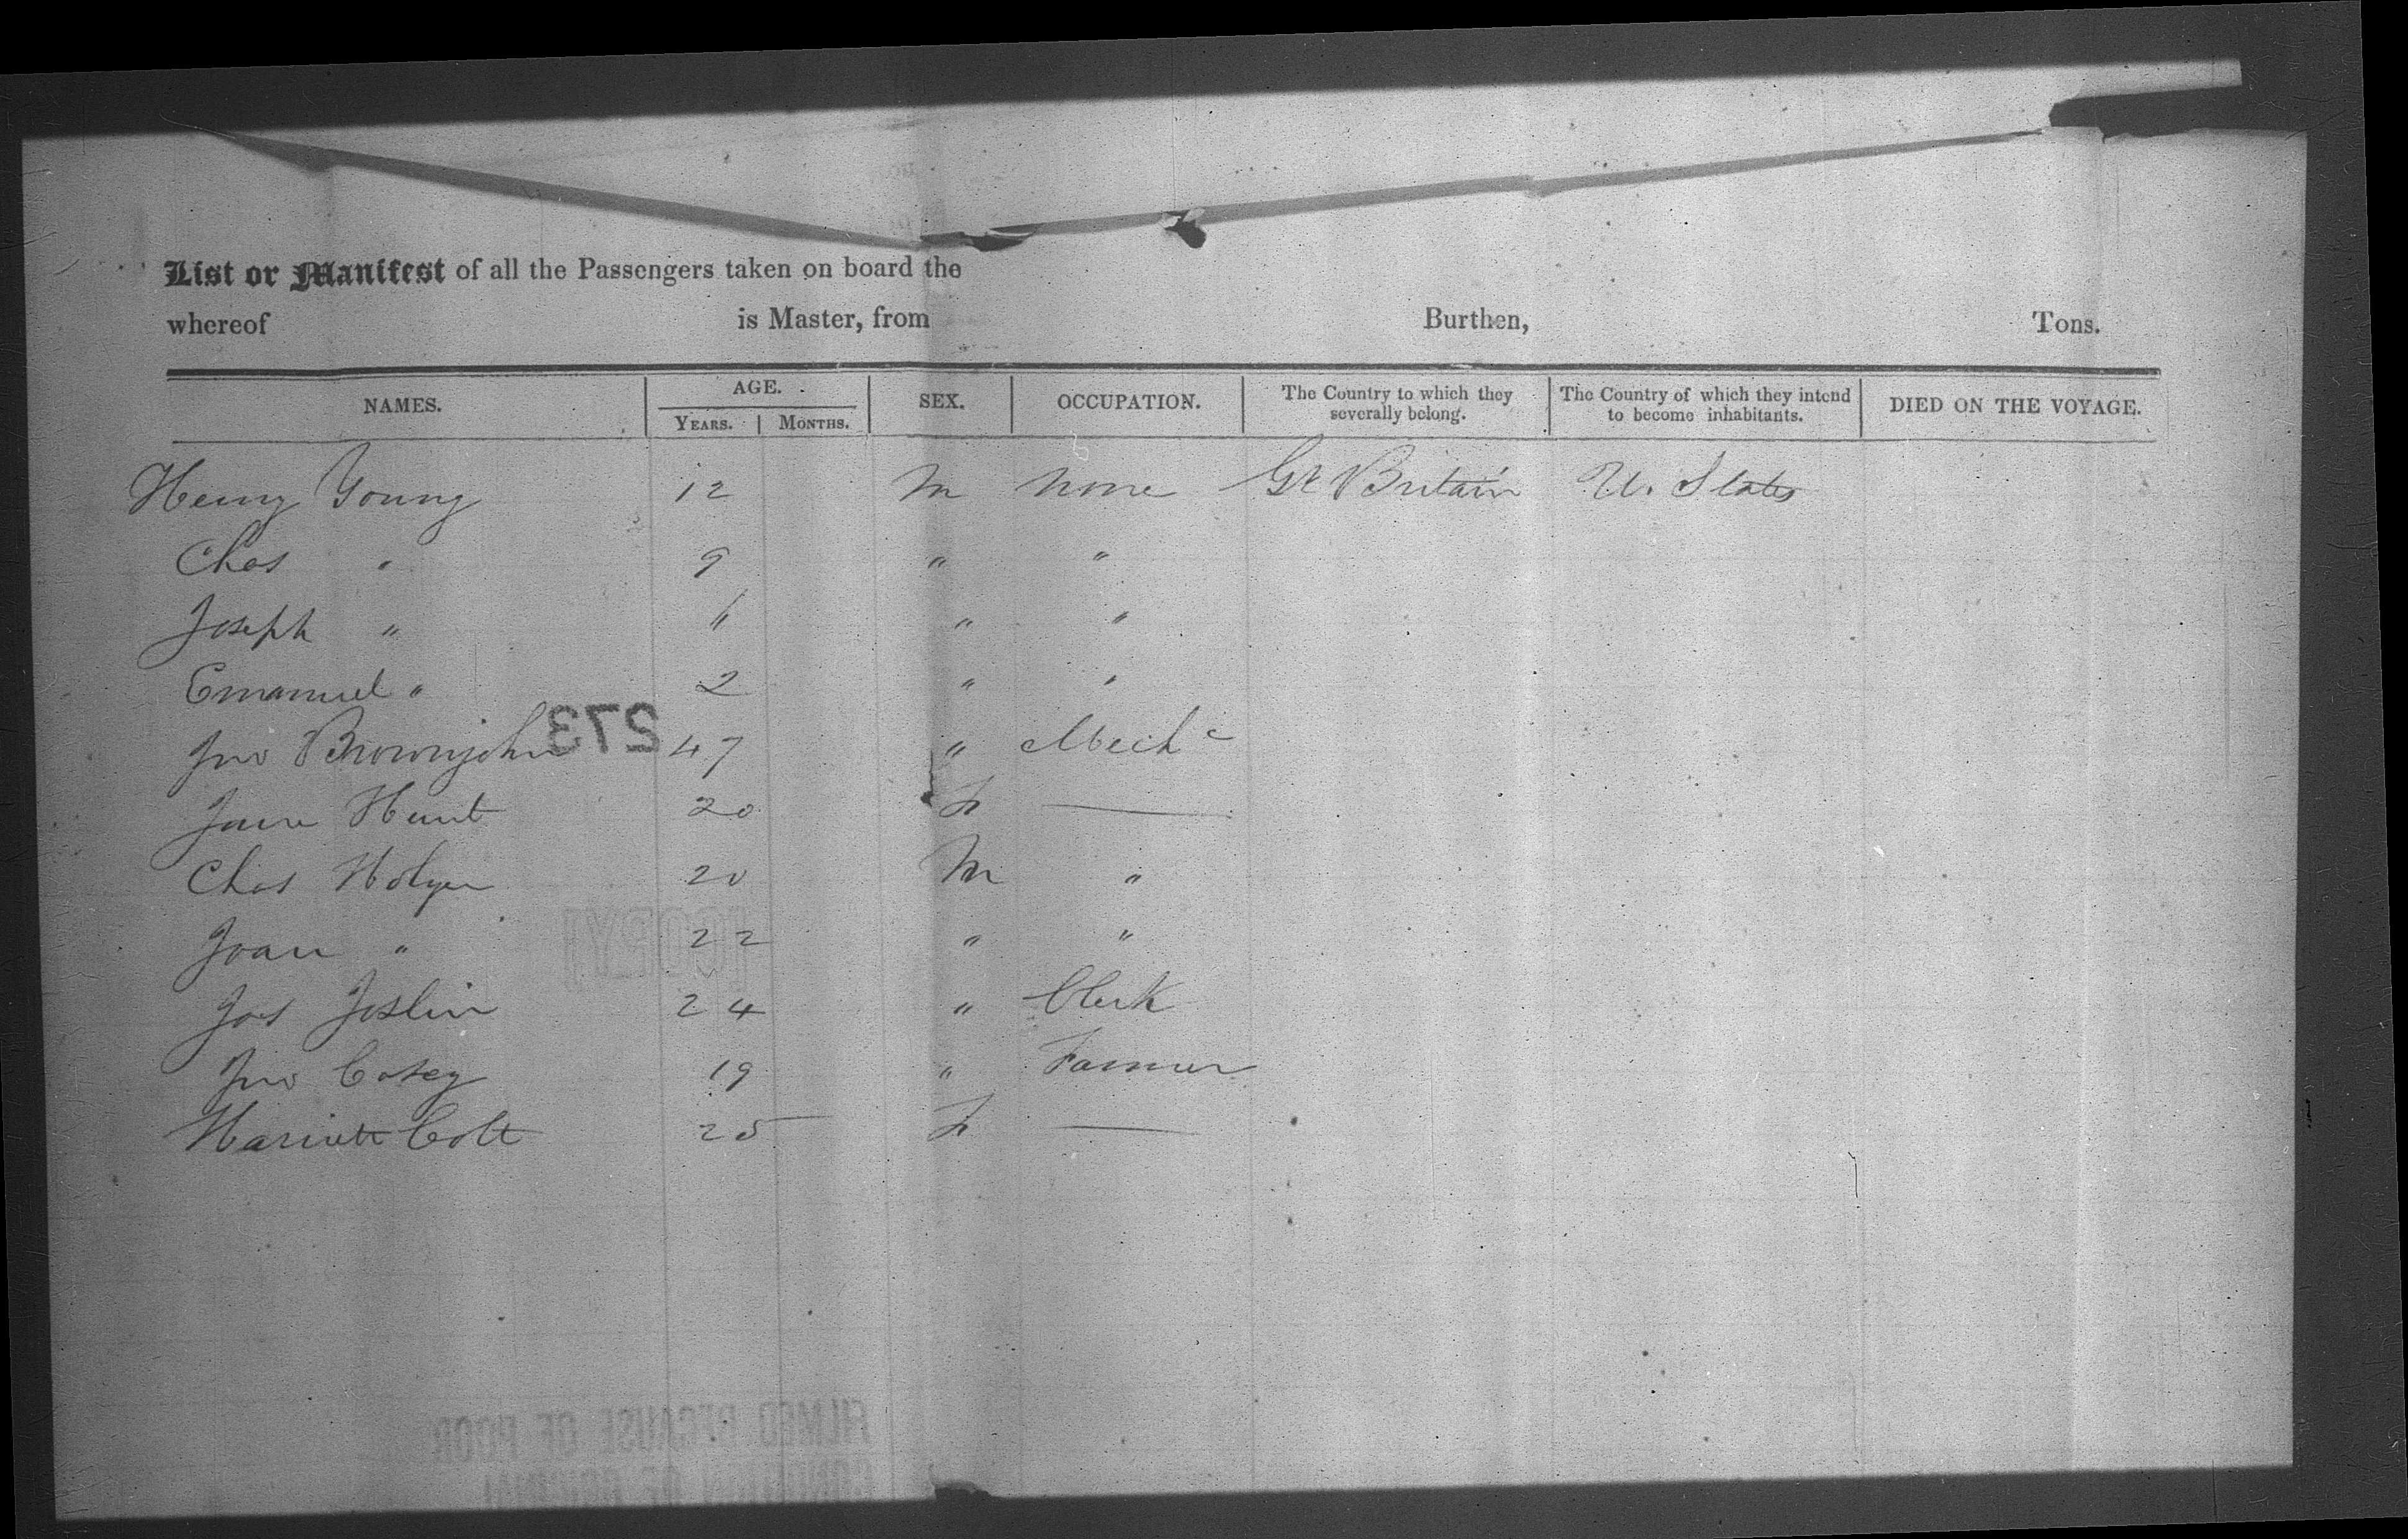 List or Manifest of all the Passengers taken on board the
whereof is Master, from Burthen, Tons.
NAMES. AGE. SEX. OCCUPATION. The Country to which they severally belong. The Country of which they intend to become inhabitants. DIED ON THE VOYAGE.
YEARS. MONTHS.
Henry Young 12 M None Gt Britain U. States
Chas " 9 " "
Joseph " 6 " "
Emanuel " 2 " "
Jno Brownjohn 47 " Mechc
273
Jane Hunt 20 F —
Chas Holyer 20 M "
Joan " 22 " "
[COPY]
Jos Joslin 24 " Clerk
Jno Casey 19 " Farmer
Harriett Colt 25 F —
FILMED BECAUSE OF POOR
CONDITION OF ORIGINAL